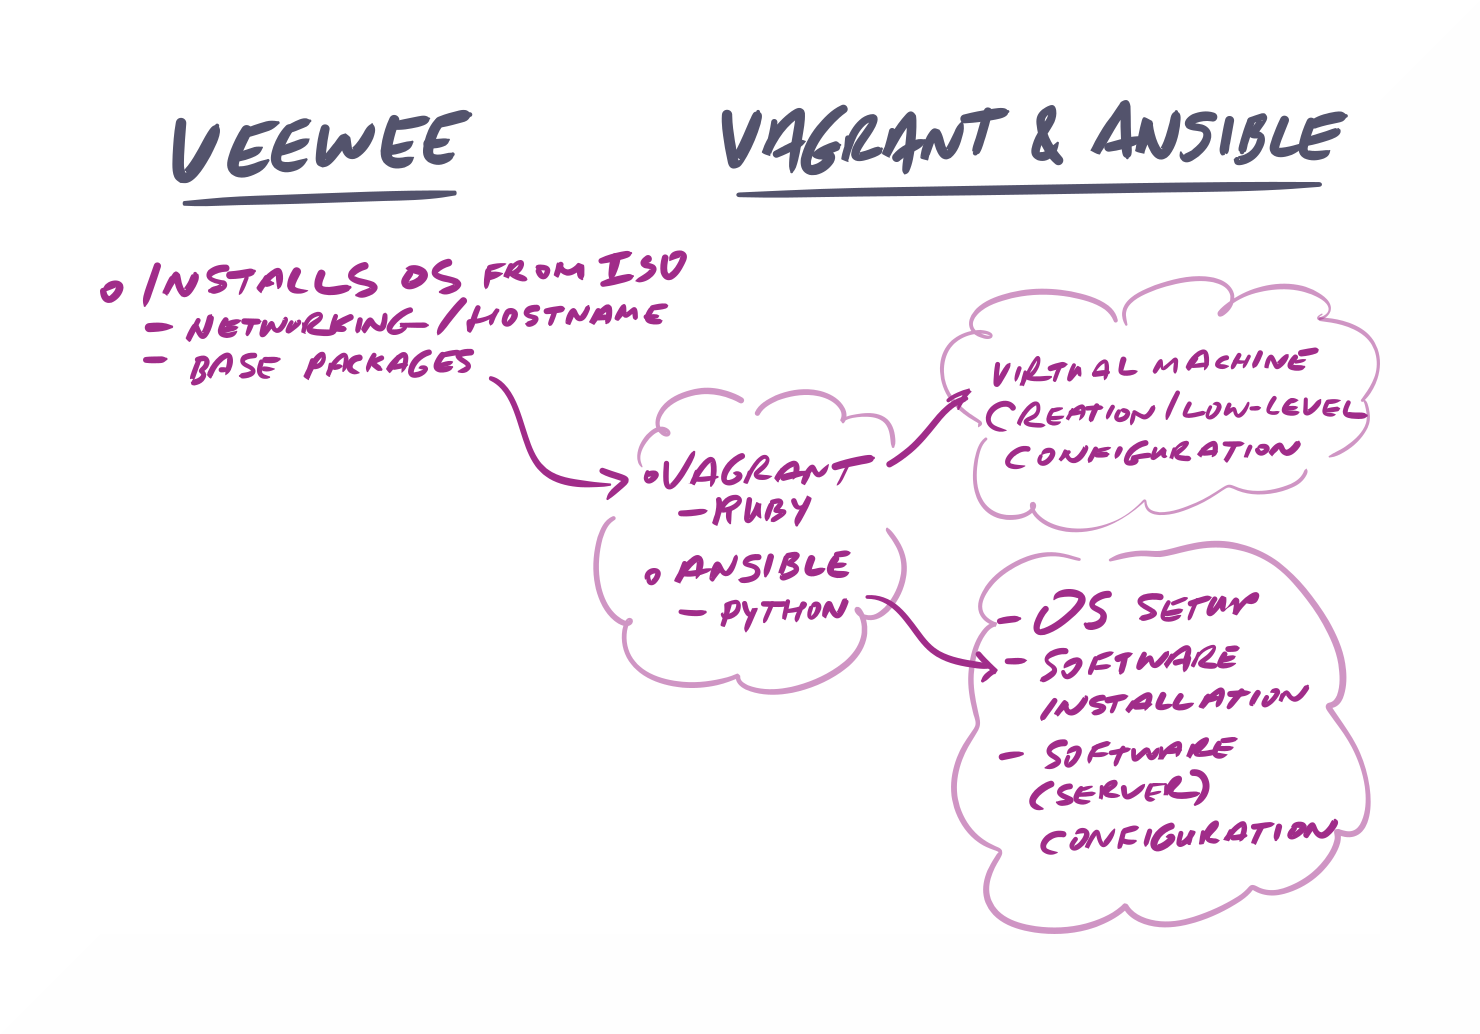 VEEWEE
VAGRANT & ANSIBLE
o INSTALLS OS FROM ISO
- NETWORKING/HOSTNAME
- BASE PACKAGES
o VAGRANT
- RUBY
o ANSIBLE
- PYTHON
VIRTUAL MACHINE
CREATION/LOW-LEVEL
CONFIGURATION
- OS SETUP
- SOFTWARE
INSTALLATION
- SOFTWARE
(SERVER)
CONFIGURATION